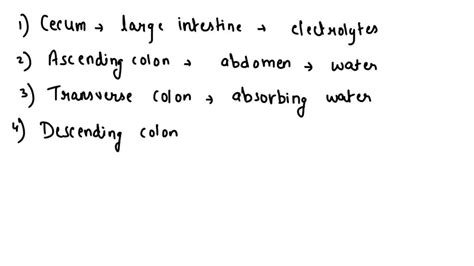 1) Cecum → large intestine → electrolytes
2) Ascending colon → abdomen → water
3) Transverse colon → absorbing water
4) Descending colon